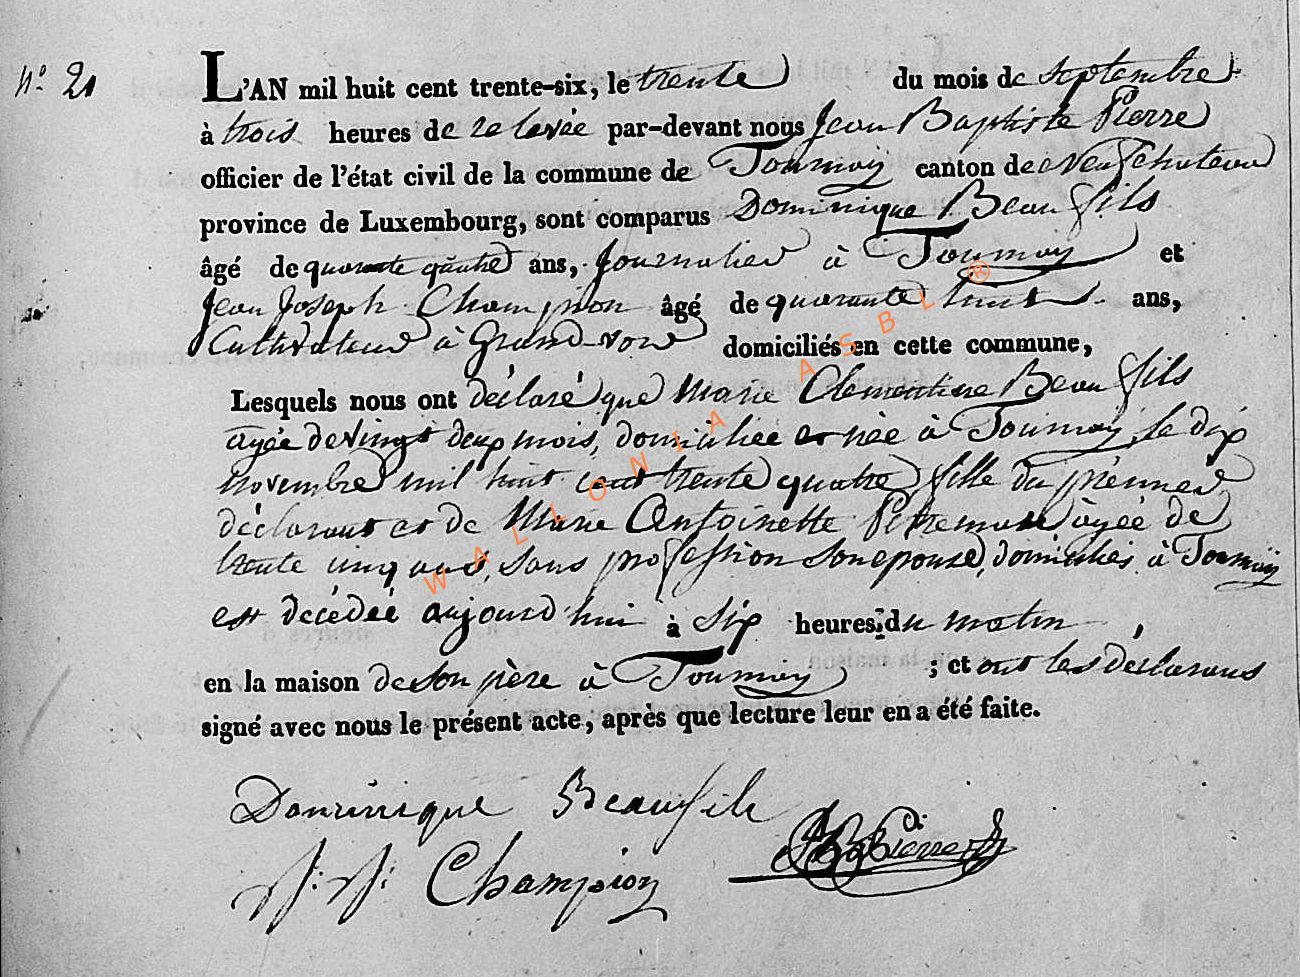 N.º 21
L'AN mil huit cent trente-six, le trente du mois de septembre
à trois heures de relevée par-devant nous Jean Baptiste Pierre
officier de l'état civil de la commune de Tournay canton de Neufchateau
province de Luxembourg, sont comparus Dominique Beaufils
âgé de quarante quatre ans, Journalier à Tournay et
Jean Joseph Champion âgé de quarante huit ans,
Cultivateur à Grand-voir domiciliés en cette commune,
Lesquels nous ont déclaré que Marie Clementine Beaufils
agée de vingt deux mois, domiciliée et née à Tournay, le dix
novembre mil huit cent trente quatre, fille du prémier
déclarant et de Marie Antoinette agée de
trente cinq ans, sans profession son epouse, domiciliés à Tournay
est décédée aujourd'hui à six heures du matin
en la maison de son père à Tournay ; et ont les déclarans
signé avec nous le présent acte, après que lecture leur en a été faite.
Dominique Beaufils
JBte Pierre
J. J. Champion
WALLONIA ASBL ®